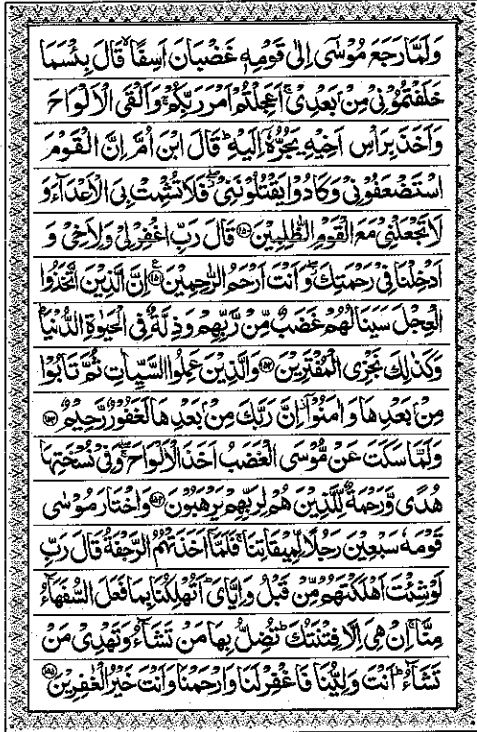 وَلَمَّا رَجَعَ مُوْسٰٓى اِلٰى قَوْمِهٖ غَضْبَانَ اَسِفًا ۙ قَالَ بِئْسَمَا
خَلَفْتُمُوْنِيْ مِنْۢ بَعْدِيْ ۚ اَعَجِلْتُمْ اَمْرَ رَبِّكُمْ ۚ وَاَلْقَى الْاَلْوَاحَ
وَاَخَذَ بِرَاْسِ اَخِيْهِ يَجُرُّهٗٓ اِلَيْهِ ؕ قَالَ ابْنَ اُمَّ اِنَّ الْقَوْمَ
اسْتَضْعَفُوْنِيْ وَكَادُوْا يَقْتُلُوْنَنِيْ ۖ فَلَا تُشْمِتْ بِيَ الْاَعْدَآءَ وَ
لَا تَجْعَلْنِيْ مَعَ الْقَوْمِ الظّٰلِمِيْنَ ﴿۱۵۰﴾ قَالَ رَبِّ اغْفِرْ لِيْ وَلِاَخِيْ وَ
اَدْخِلْنَا فِيْ رَحْمَتِكَ ۖ وَاَنْتَ اَرْحَمُ الرّٰحِمِيْنَ ﴿۱۵۱﴾ اِنَّ الَّذِيْنَ اتَّخَذُوا
الْعِجْلَ سَيَنَالُهُمْ غَضَبٌ مِّنْ رَّبِّهِمْ وَذِلَّةٌ فِي الْحَيٰوةِ الدُّنْيَا ؕ
وَكَذٰلِكَ نَجْزِي الْمُفْتَرِيْنَ ﴿۱۵۲﴾ وَالَّذِيْنَ عَمِلُوا السَّيِّاٰتِ ثُمَّ تَابُوْا
مِنْۢ بَعْدِهَا وَاٰمَنُوْۤا ۫ اِنَّ رَبَّكَ مِنْۢ بَعْدِهَا لَغَفُوْرٌ رَّحِيْمٌ ﴿۱۵۳﴾
وَلَمَّا سَكَتَ عَنْ مُّوْسَى الْغَضَبُ اَخَذَ الْاَلْوَاحَ ۖ وَفِيْ نُسْخَتِهَا
هُدًى وَّرَحْمَةٌ لِّلَّذِيْنَ هُمْ لِرَبِّهِمْ يَرْهَبُوْنَ ﴿۱۵۴﴾ وَاخْتَارَ مُوْسٰى
قَوْمَهٗ سَبْعِيْنَ رَجُلًا لِّمِيْقَاتِنَا ۚ فَلَمَّاۤ اَخَذَتْهُمُ الرَّجْفَةُ قَالَ رَبِّ
لَوْ شِئْتَ اَهْلَكْتَهُمْ مِّنْ قَبْلُ وَاِيَّايَ ؕ اَتُهْلِكُنَا بِمَا فَعَلَ السُّفَهَآءُ
مِنَّا ۚ اِنْ هِيَ اِلَّا فِتْنَتُكَ ؕ تُضِلُّ بِهَا مَنْ تَشَآءُ وَتَهْدِيْ مَنْ
تَشَآءُ ؕ اَنْتَ وَلِيُّنَا فَاغْفِرْ لَنَا وَارْحَمْنَا وَاَنْتَ خَيْرُ الْغٰفِرِيْنَ ﴿۱۵۵﴾